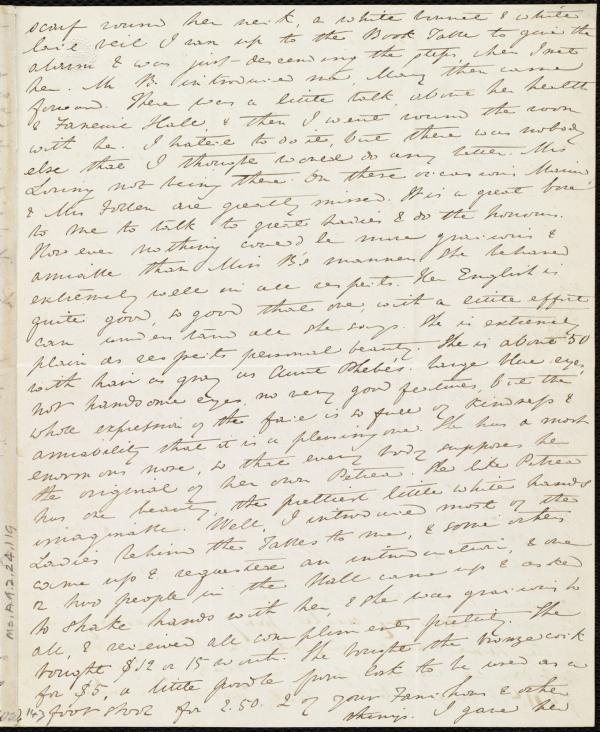 scarf round her neck, a white bonnet & white
lace veil I ran up to the Book Table to give the
alarm & was just descending the steps, when I met
her. Mr B. introduced me, Mary then came
forward. There was a little talk, about her health
& Faneuil Hall & then I went round the room
with her. I hated to do it, but there was nobody
else that I thought would do any better. Mrs
Loring not being there. On these occasions, Maria
& Mrs Follen are greatly missed. It is a great bore
to me to talk to great ladies & do the honours.
However nothing could be more gracious &
amiable than Miss B's manner. She behaved
extremely well in all respects. Her English is
quite good, so good that one, with a little effort
can understand all she says. She is extremely
plain as respects personal beauty. She is about 50
with hair as gray as Aunt Phebe's. large blue eyes,
not handsome eyes, no very good features, but the
whole expression of the face is so full of kindness &
amiability that it is a pleasing one. She has a most
enormous nose, so that every body supposes her
the original of her own Petrea. like Petrea
has one beauty, the prettiest little white hands
imaginable. Well, I introduced most of the
Ladies behind the Tables to me, & some others
came up & requested an introduction, & one
or two people in the Hall came up & asked
to shake hands with her, & she was gracious to
all, & received all compliments prettily. She
bought $12 or 15 worth. She bought the bronze cork
for $5, a little poodle from to be used as a
footstool for 2.50. 2 of your & other
things. I gave her
Ms.A.9.2.24,119